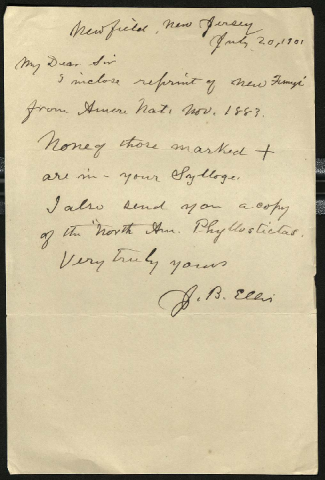 Newfield, New Jersey
July 20, 1901
My Dear Sir
I inclose reprint of new Fungi
from Amer. Nat. Nov. 1883.
None of those marked +
are in your Sylloge.
I also send you a copy
of the "North Am. Phyllostictas.
Very truly yours
J. B. Ellis